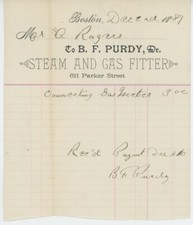 Boston, Dec 188
Mr Rogers
To B. F. PURDY, Dr.
STEAM AND GAS FITTER,
611 Parker Street.
Connecting Gas
Rec'd Payment Dec
B F Purdy